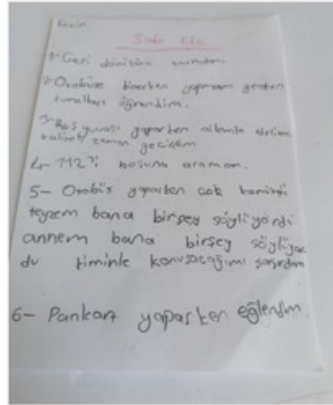 Safe life
1- Geri dönüşüm
2- Otobüse binerken yapmam gereken
kuralları öğrendim.
3- Kuş yuvası yaparken ailemle birlikte
kaliteli zaman geçirdim
4- 112'i boşuna aramam.
5- Otobüs yaparken çok komikti
teyzem bana birşey söylüyordu
annem bana birşey söylüyor
du kiminle konuşacağımı şaşırdım
6- Pankart yaparken eğlendim